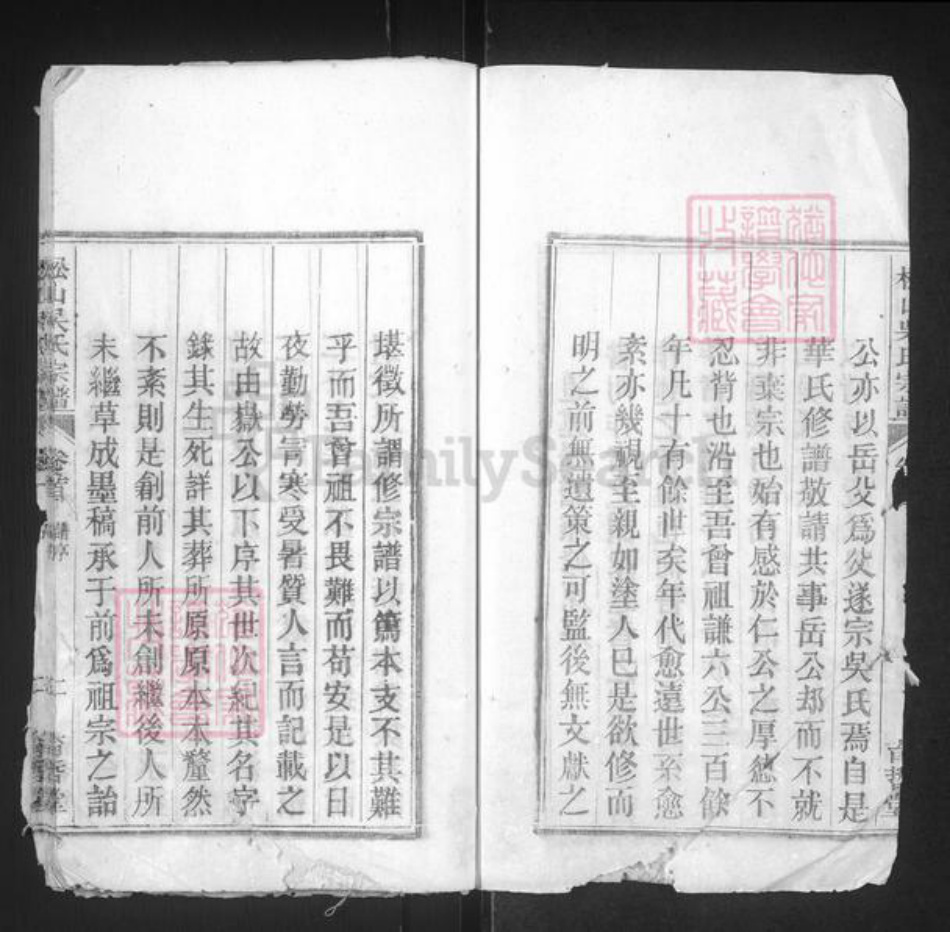 公亦以岳父爲父遂宗吳氏焉自是
華氏修譜敬請共事岳公却而不就
非棄宗也始有感於仁公之厚德不
忍背也沿至吾曾祖謙六公三百餘
年凡十有餘世矣年代愈遠世系愈
紊亦幾視至親如塗人已是欲修而
明之前無遺策之可監後無文獻之
堪徵所謂修宗譜以篤本支不其難
乎而吾曾祖不畏難而苟安是以日
夜勤勞冐寒受暑質人言而記載之
故由嶽公以下序其世次紀其名字
錄其生死詳其葬所原原本本釐然
不紊則是創前人所未創繼後人所
未繼草成墨稿承于前爲祖宗之詒
松山吳氏宗譜
卷首
譜序
FamilySearch